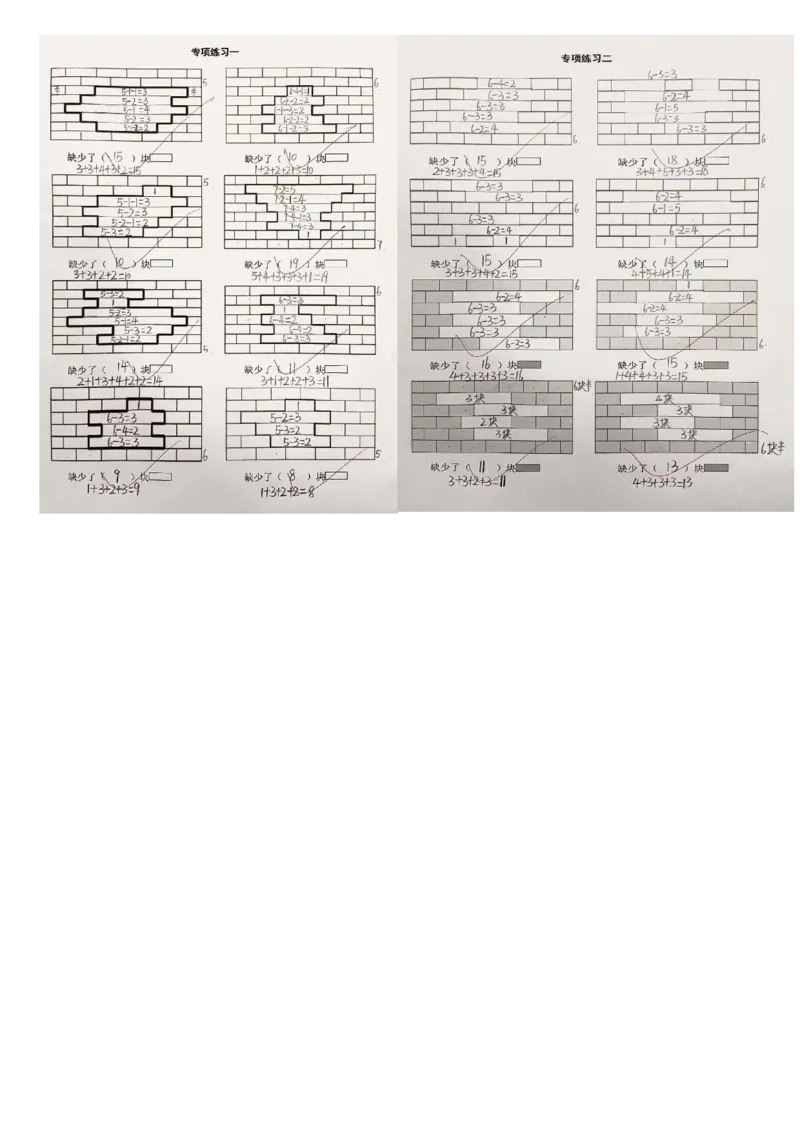 专项练习一
5
半 5-1-1=3 半
5-2=3
5-1=4
5-2=3
5-3=2
缺少了( 15 )块
3+3+4+3+2=15
6
6-4-1=1
6-2-2=2
6-1-3=2
6-2-2=2
6-1-2=3
缺少了( 10 )块
1+2+2+2+3=10
5
1
5-1-1=3
5-2=3
5-2-1=2
5-3=2
缺少了( 10 )块
3+3+2+2=10
7-2=5
7-2-1=4
7-4=3
7-4-1=3
7-4=3
1
7
缺少了( 19 )块
5+4+3+3+3+1=19
5-3=2
1
5-2=3
5-1=4
5-3=2
5-2-1=2
5
缺少了( 14 )块
2+1+3+4+2+2=14
6
6-3=3
1
6-4=2
6-4=2
6-3=3
缺少了( 11 )块
3+1+2+2+3=11
1
6-3=3
6-4=2
6-3=3
6
缺少了( 9 )块
1+3+2+3=9
1
5-2=3
5-3=2
5-3=2
5
缺少了( 8 )块
1+3+2+2=8
专项练习二
6-4=2
6-3=3
6-3=3
6-3=3
6-2=4
6
缺少了( 15 )块
2+3+3+3+4=15
6-3=3
6-2=4
6-1=5
6-3=3
6-3=3
6
缺少了( 18 )块
3+4+5+3+3=18
6-3=3
6-3=3
6
6-3=3
6-2=4
1 1
缺少了( 15 )块
3+3+3+4+2=15
6
6-2=4
6-1=5
6-2=4
1
缺少了( 14 )块
4+5+4+1=14
6
6-2=4
6-3=3
6-3=3
6-3=3
6-3=3
缺少了( 16 )块
4+3+3+3+3=16
1
6-2=4
6-2=4
6-3=3
6-3=3
6
缺少了( 15 )块
1+4+4+3+3=15
6块半
3块
3块
2块
3块
缺少了( 11 )块
3+3+2+3=11
4块
3块
3块
3块
6块半
缺少了( 13 )块
4+3+3+3=13